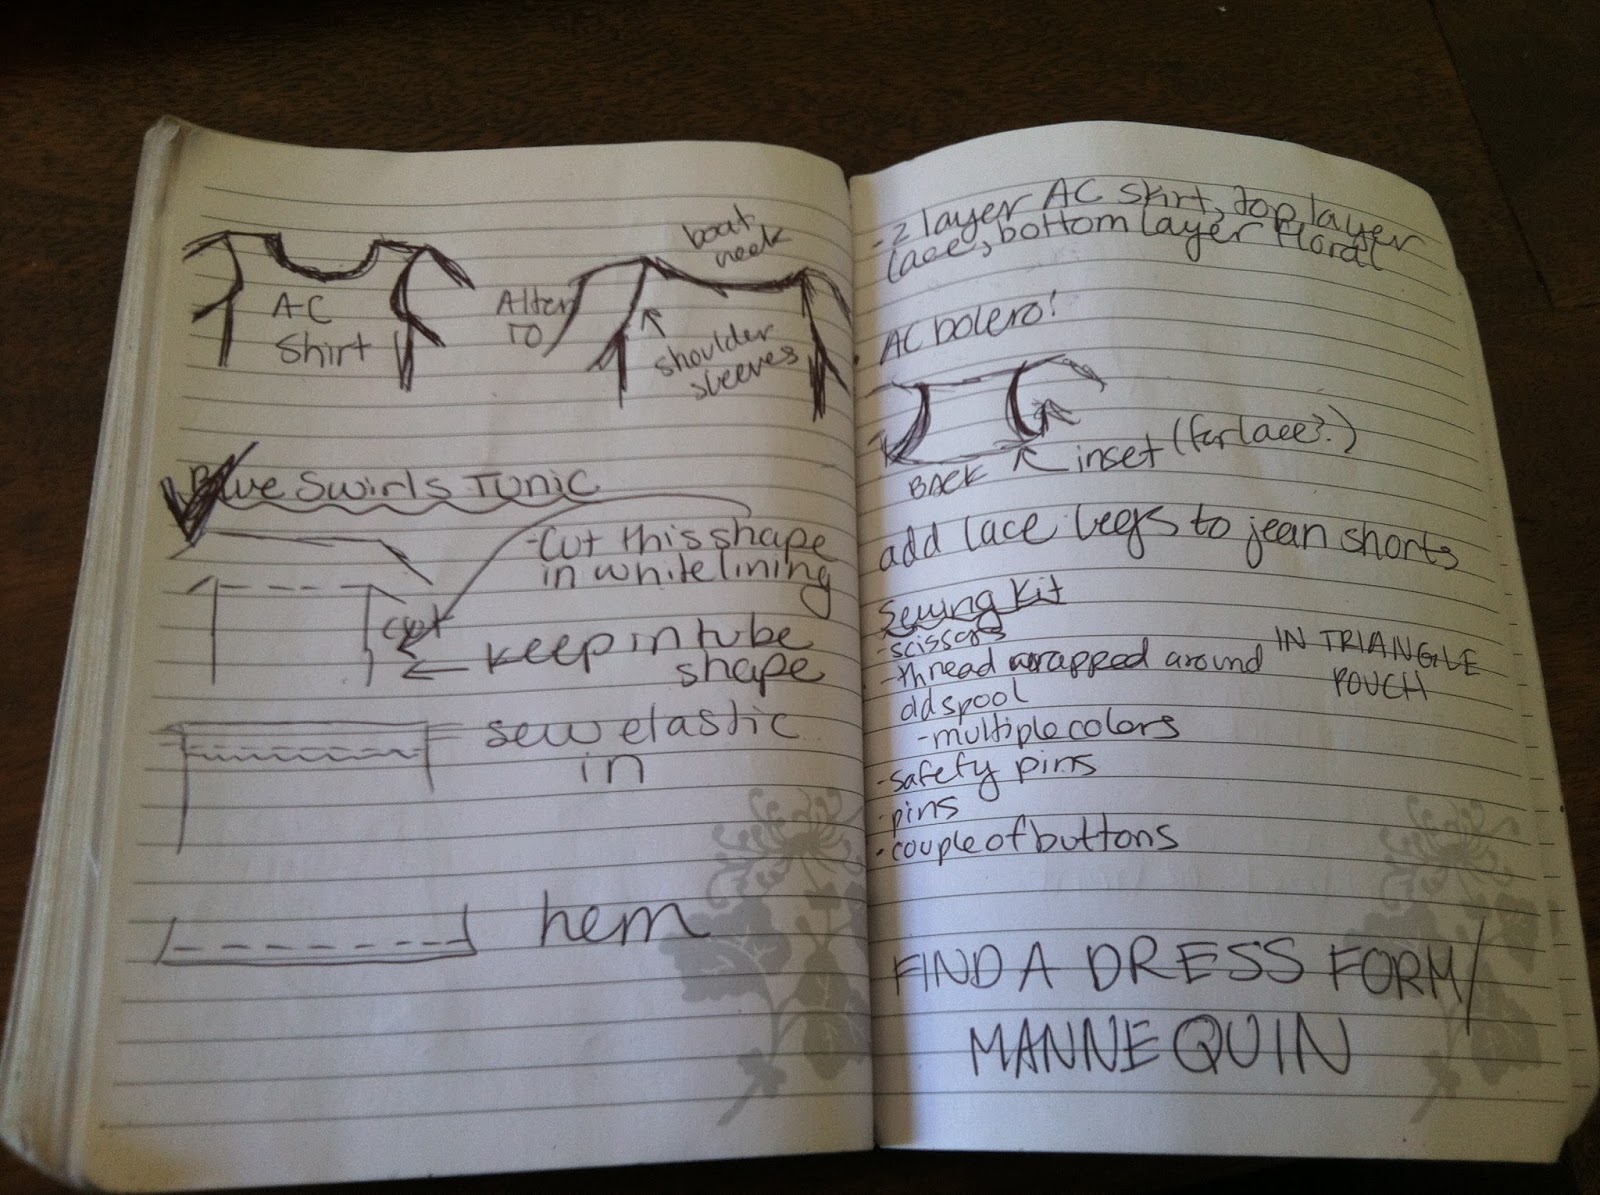 AC
Shirt
Alter
TO
boat
neck
shoulder
sleeves
Blue Swirls Tunic
-Cut this shape
in white lining
cut
keep in tube
shape
sew elastic
in
hem
-2 layer AC skirt, top layer
lace, bottom layer floral
· AC bolero!
BACK
inset (for lace?.)
add lace legs to jean shorts
Sewing Kit
-scissors
-thread wrapped around
old spool
-multiple colors
-safety pins
-pins
·couple of buttons
IN TRIANGLE
POUCH
FIND A DRESS FORM/
MANNEQUIN